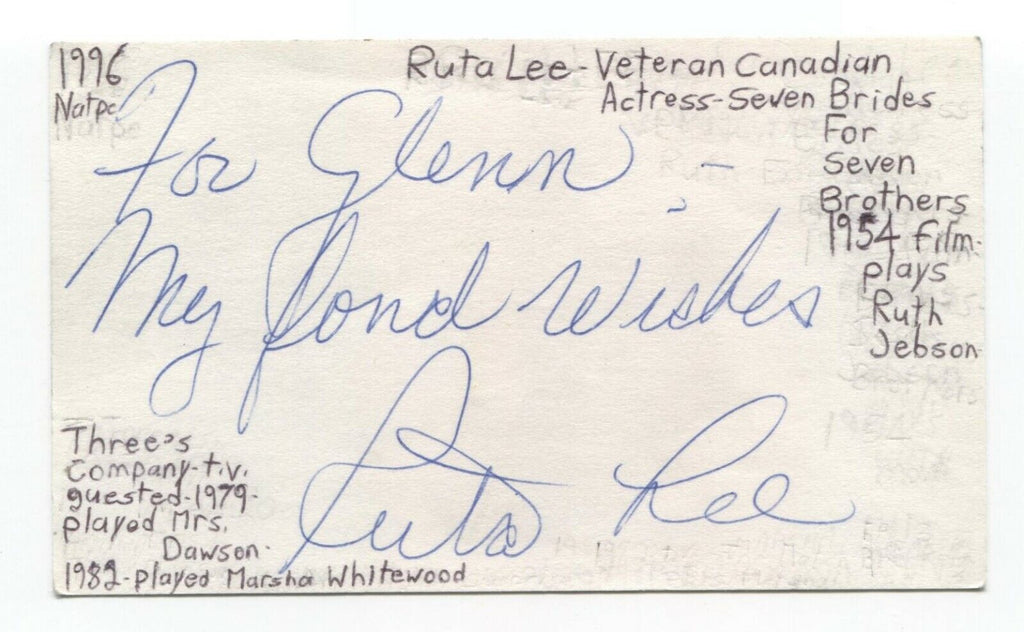 1996
Natpe
Ruta Lee - Veteran Canadian
Actress-Seven Brides
For
Seven
Brothers
1954 film-
plays
Ruth
Jebson
For Glenn -
My fond wishes
Ruta Lee
Three's
Company-t.v.
guested-1979-
played Mrs.
Dawson-
1982-played Marsha Whitewood